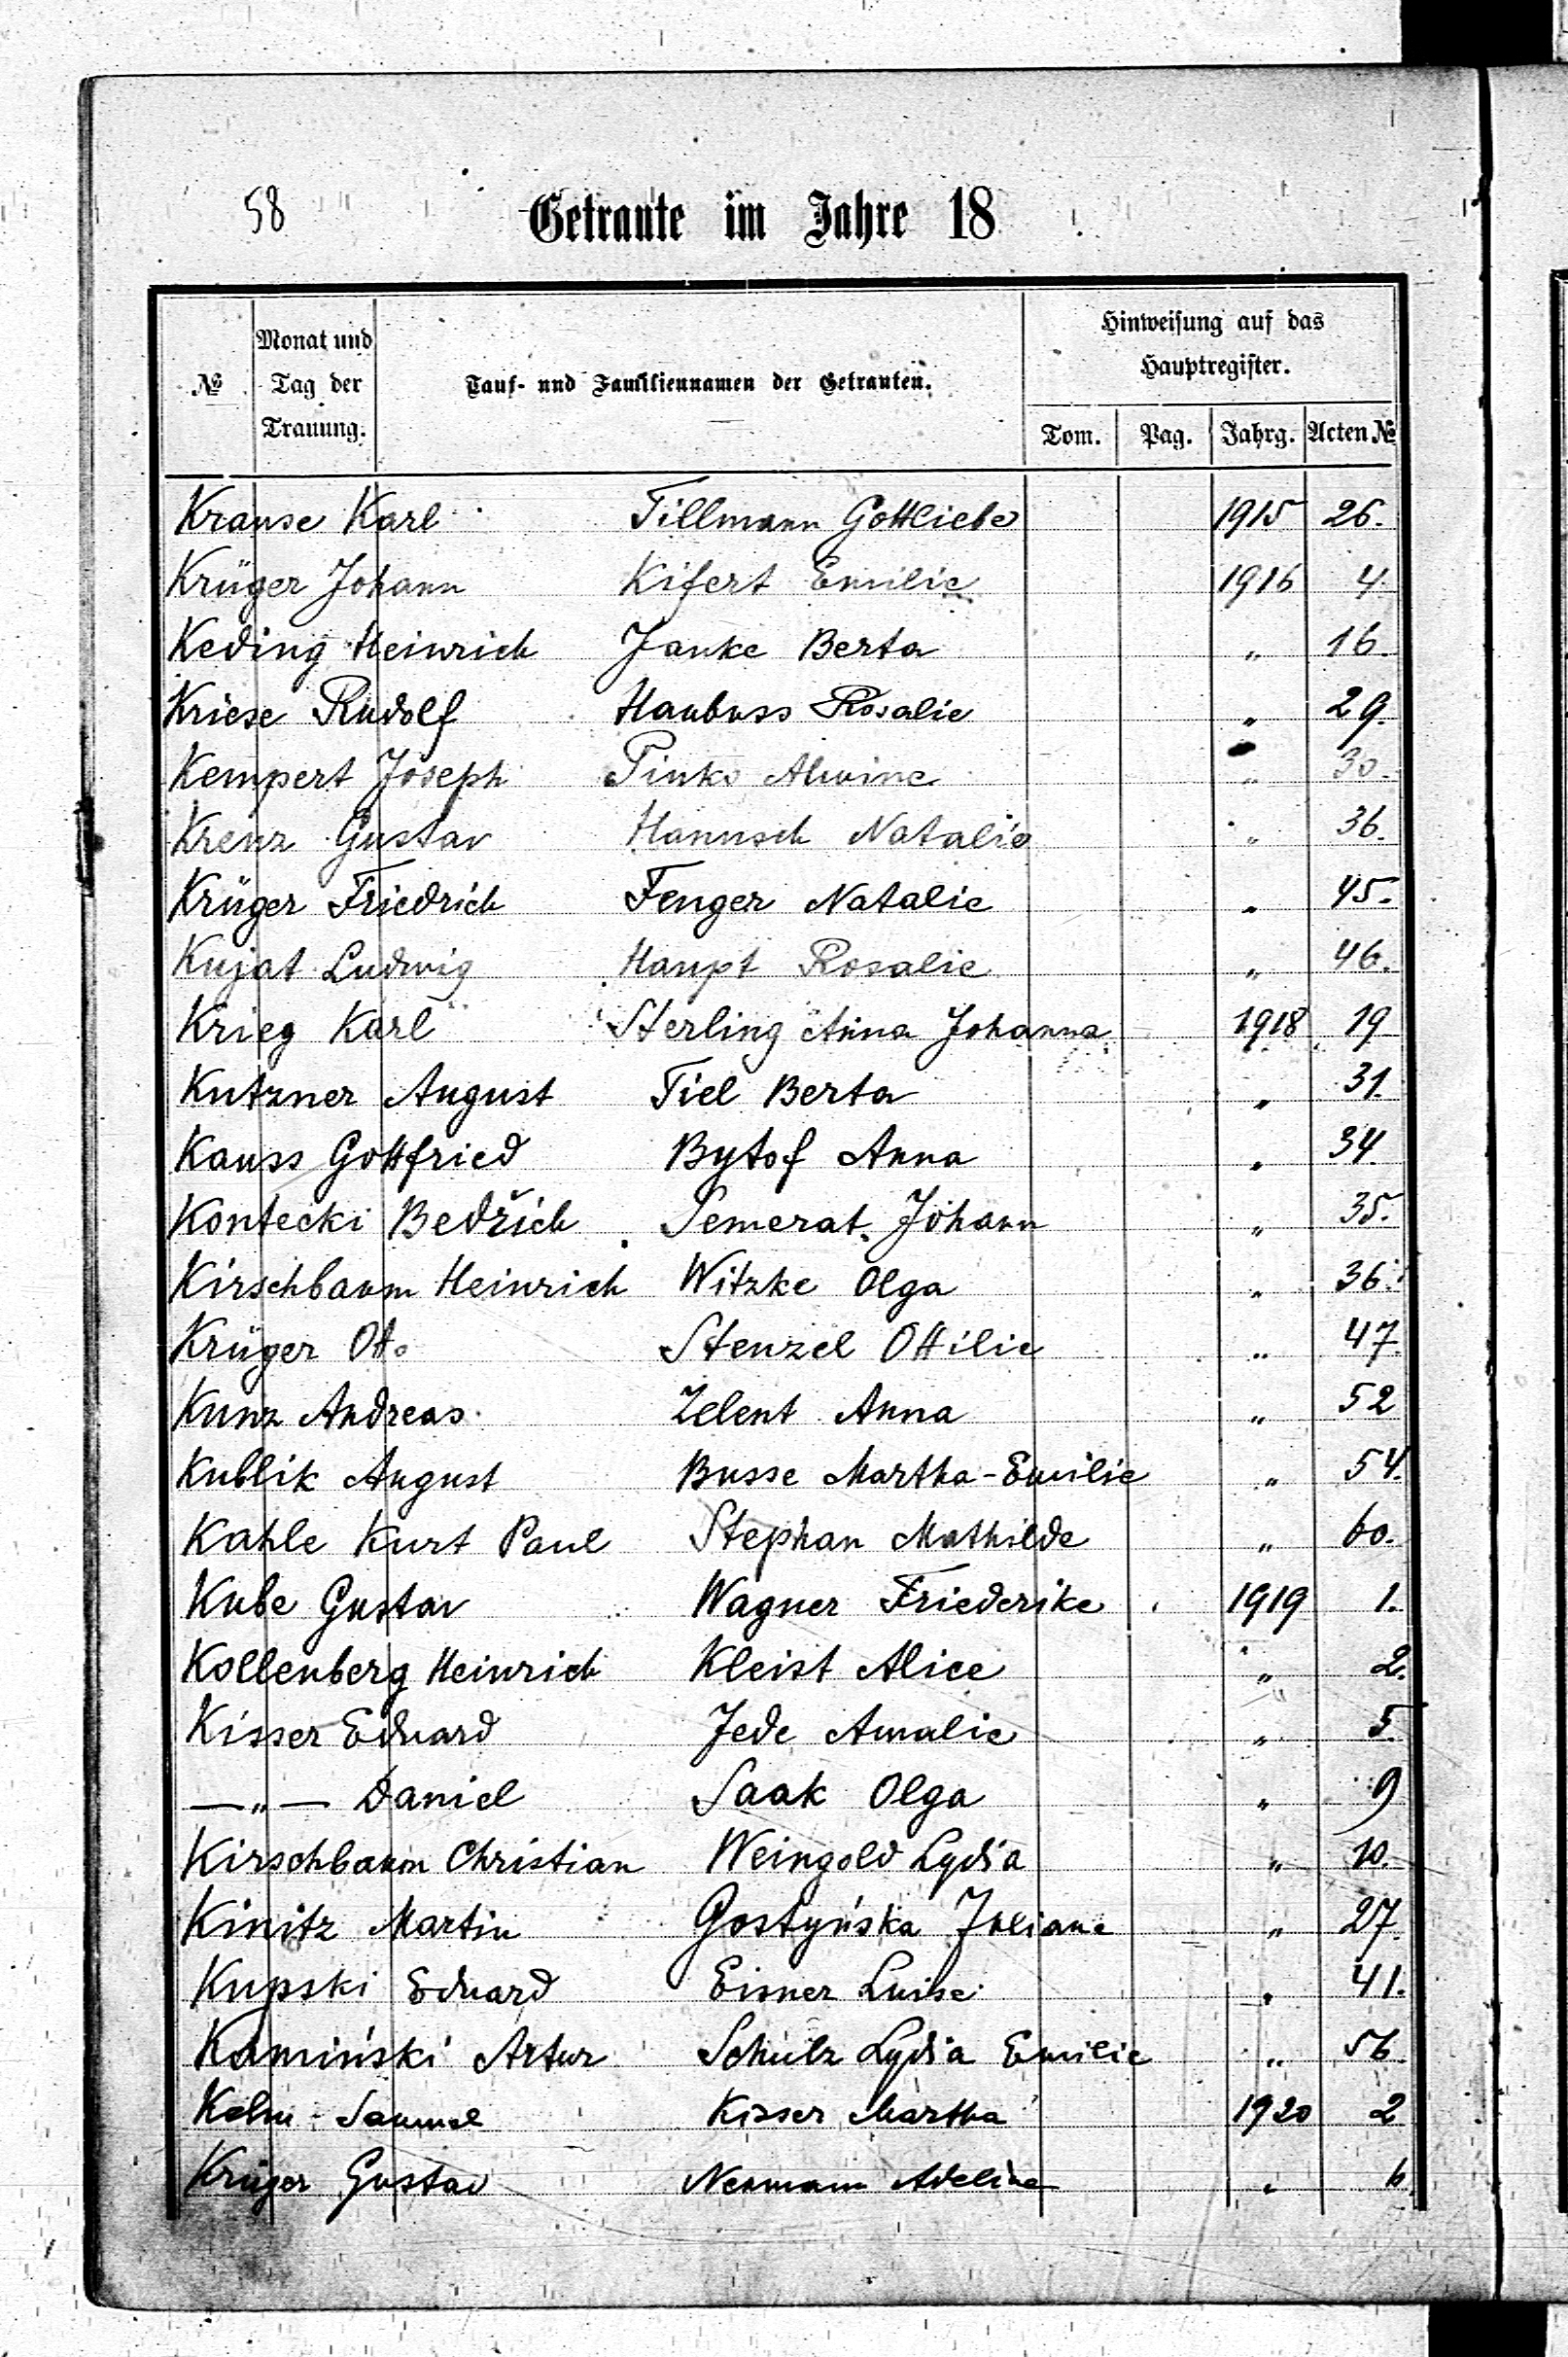 58
Getraute im Jahre 18
№ Monat und Tag der Trauung. Tauf- und Familiennamen der Getrauten. Hinweisung auf das Hauptregister.
Tom. Pag. Jahrg. Acten №
Krause Karl Tillmann Gottliebe 1915 26.
Krüger Johann Kifert Emilie 1916 4.
Keding Heinrich Janke Berta " 16.
Kriese Rudolf Haubuss Rosalie " 29.
Kempert Joseph Pinko Alwine " 30.
Krenz Gustav Hannsch Natalie " 36.
Krüger Friedrich Fenger Natalie " 45.
Kujat Ludwig Haupt Rosalie " 46.
Krieg Karl Sterling Anna Johanna 1918 19
Kutzner August Tiel Berta " 31.
Kauss Gottfried Bytof Anna " 34.
Kontecki Bedřich Semerat Johann " 35.
Kirschbaum Heinrich Witzke Olga " 36.
Krüger Otto Stenzel Ottilie " 47.
Kunz Andreas Zelent Anna " 52
Kublik August Busse Martha-Emilie " 54.
Kahle Kurt Paul Stephan Mathilde " 60.
Kube Gustav Wagner Friederike 1919 1.
Kollenberg Heinrich Kleist Alice " 2.
Kisser Eduard Jede Amalie " 5.
—„— Daniel Saak Olga " 9
Kirschbaum Christian Weingold Lydia " 10.
Kinitz Martin Gostyńska Juliane " 27.
Kupski Eduard Eisner Luise " 41.
Kamiński Artur Schulz Lydia Emilie " 56
Kelm Samuel Kisser Martha 1920 2
Krüger Gustav Neumann Adeline " 6